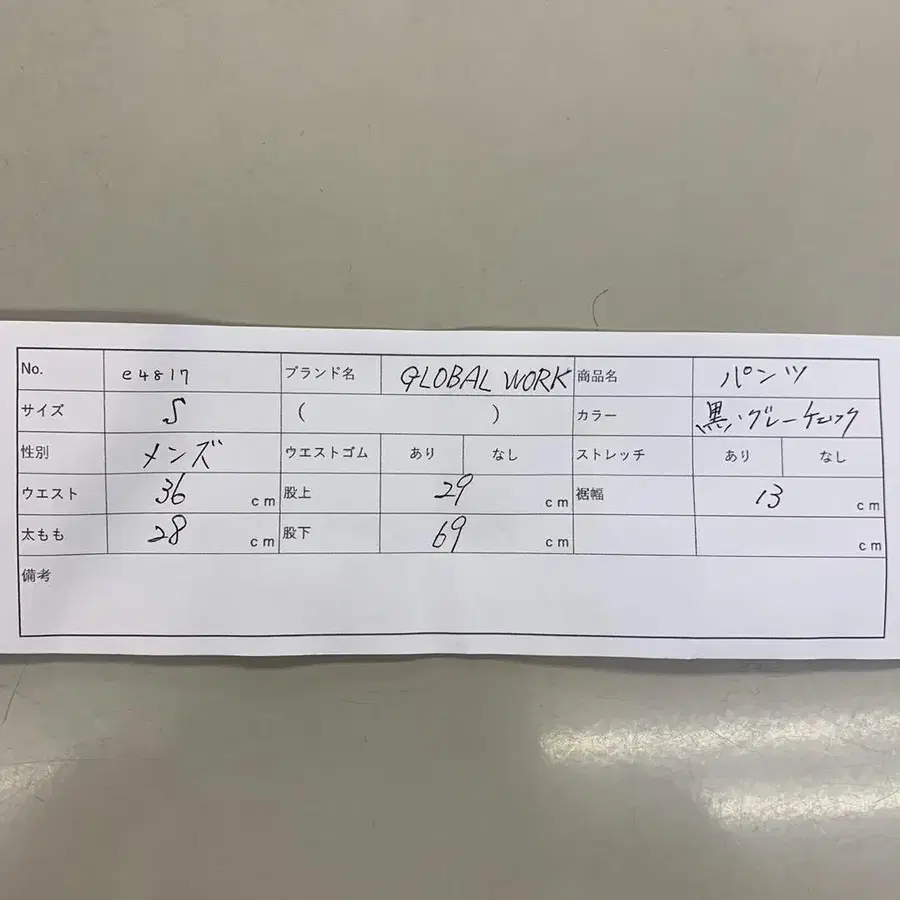 No. e4817 ブランド名 GLOBAL WORK 商品名 パンツ
サイズ S ( ) カラー 黒、グレーチェック
性別 メンズ ウエストゴム あり なし ストレッチ あり なし
ウエスト 36 cm 股上 29 cm 裾幅 13 cm
太もも 28 cm 股下 69 cm cm
備考